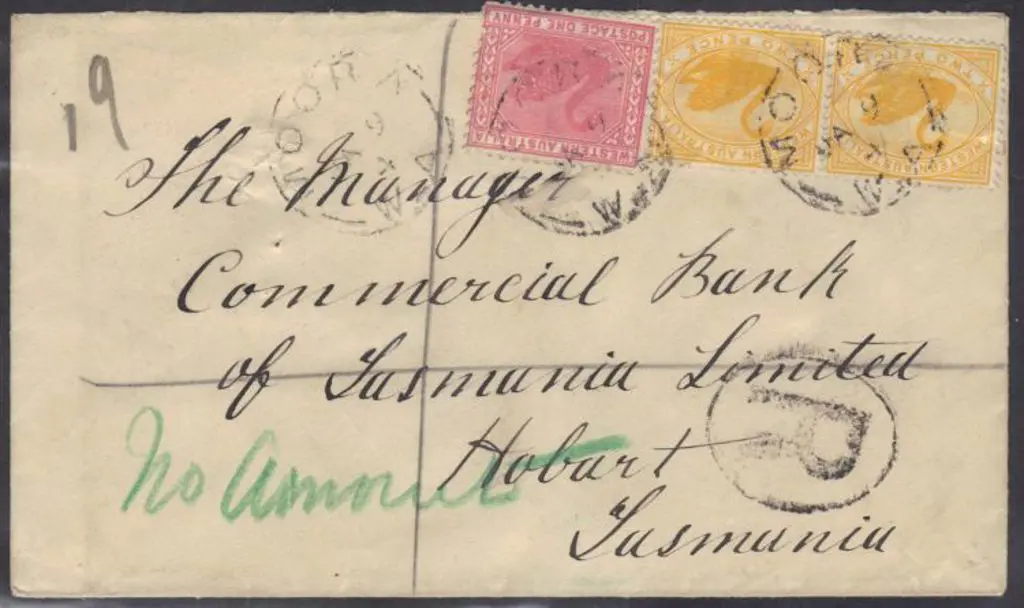 POSTAGE ONE PENNY
WESTERN AUSTRALIA
TWO PENCE
WESTERN AUSTRALIA
TWO PENCE
WESTERN AUSTRALIA
MOORA
JA 9
W.A
19
The Manager
Commercial Bank
of Tasmania Limited
Hobart
Tasmania
No Amount
R